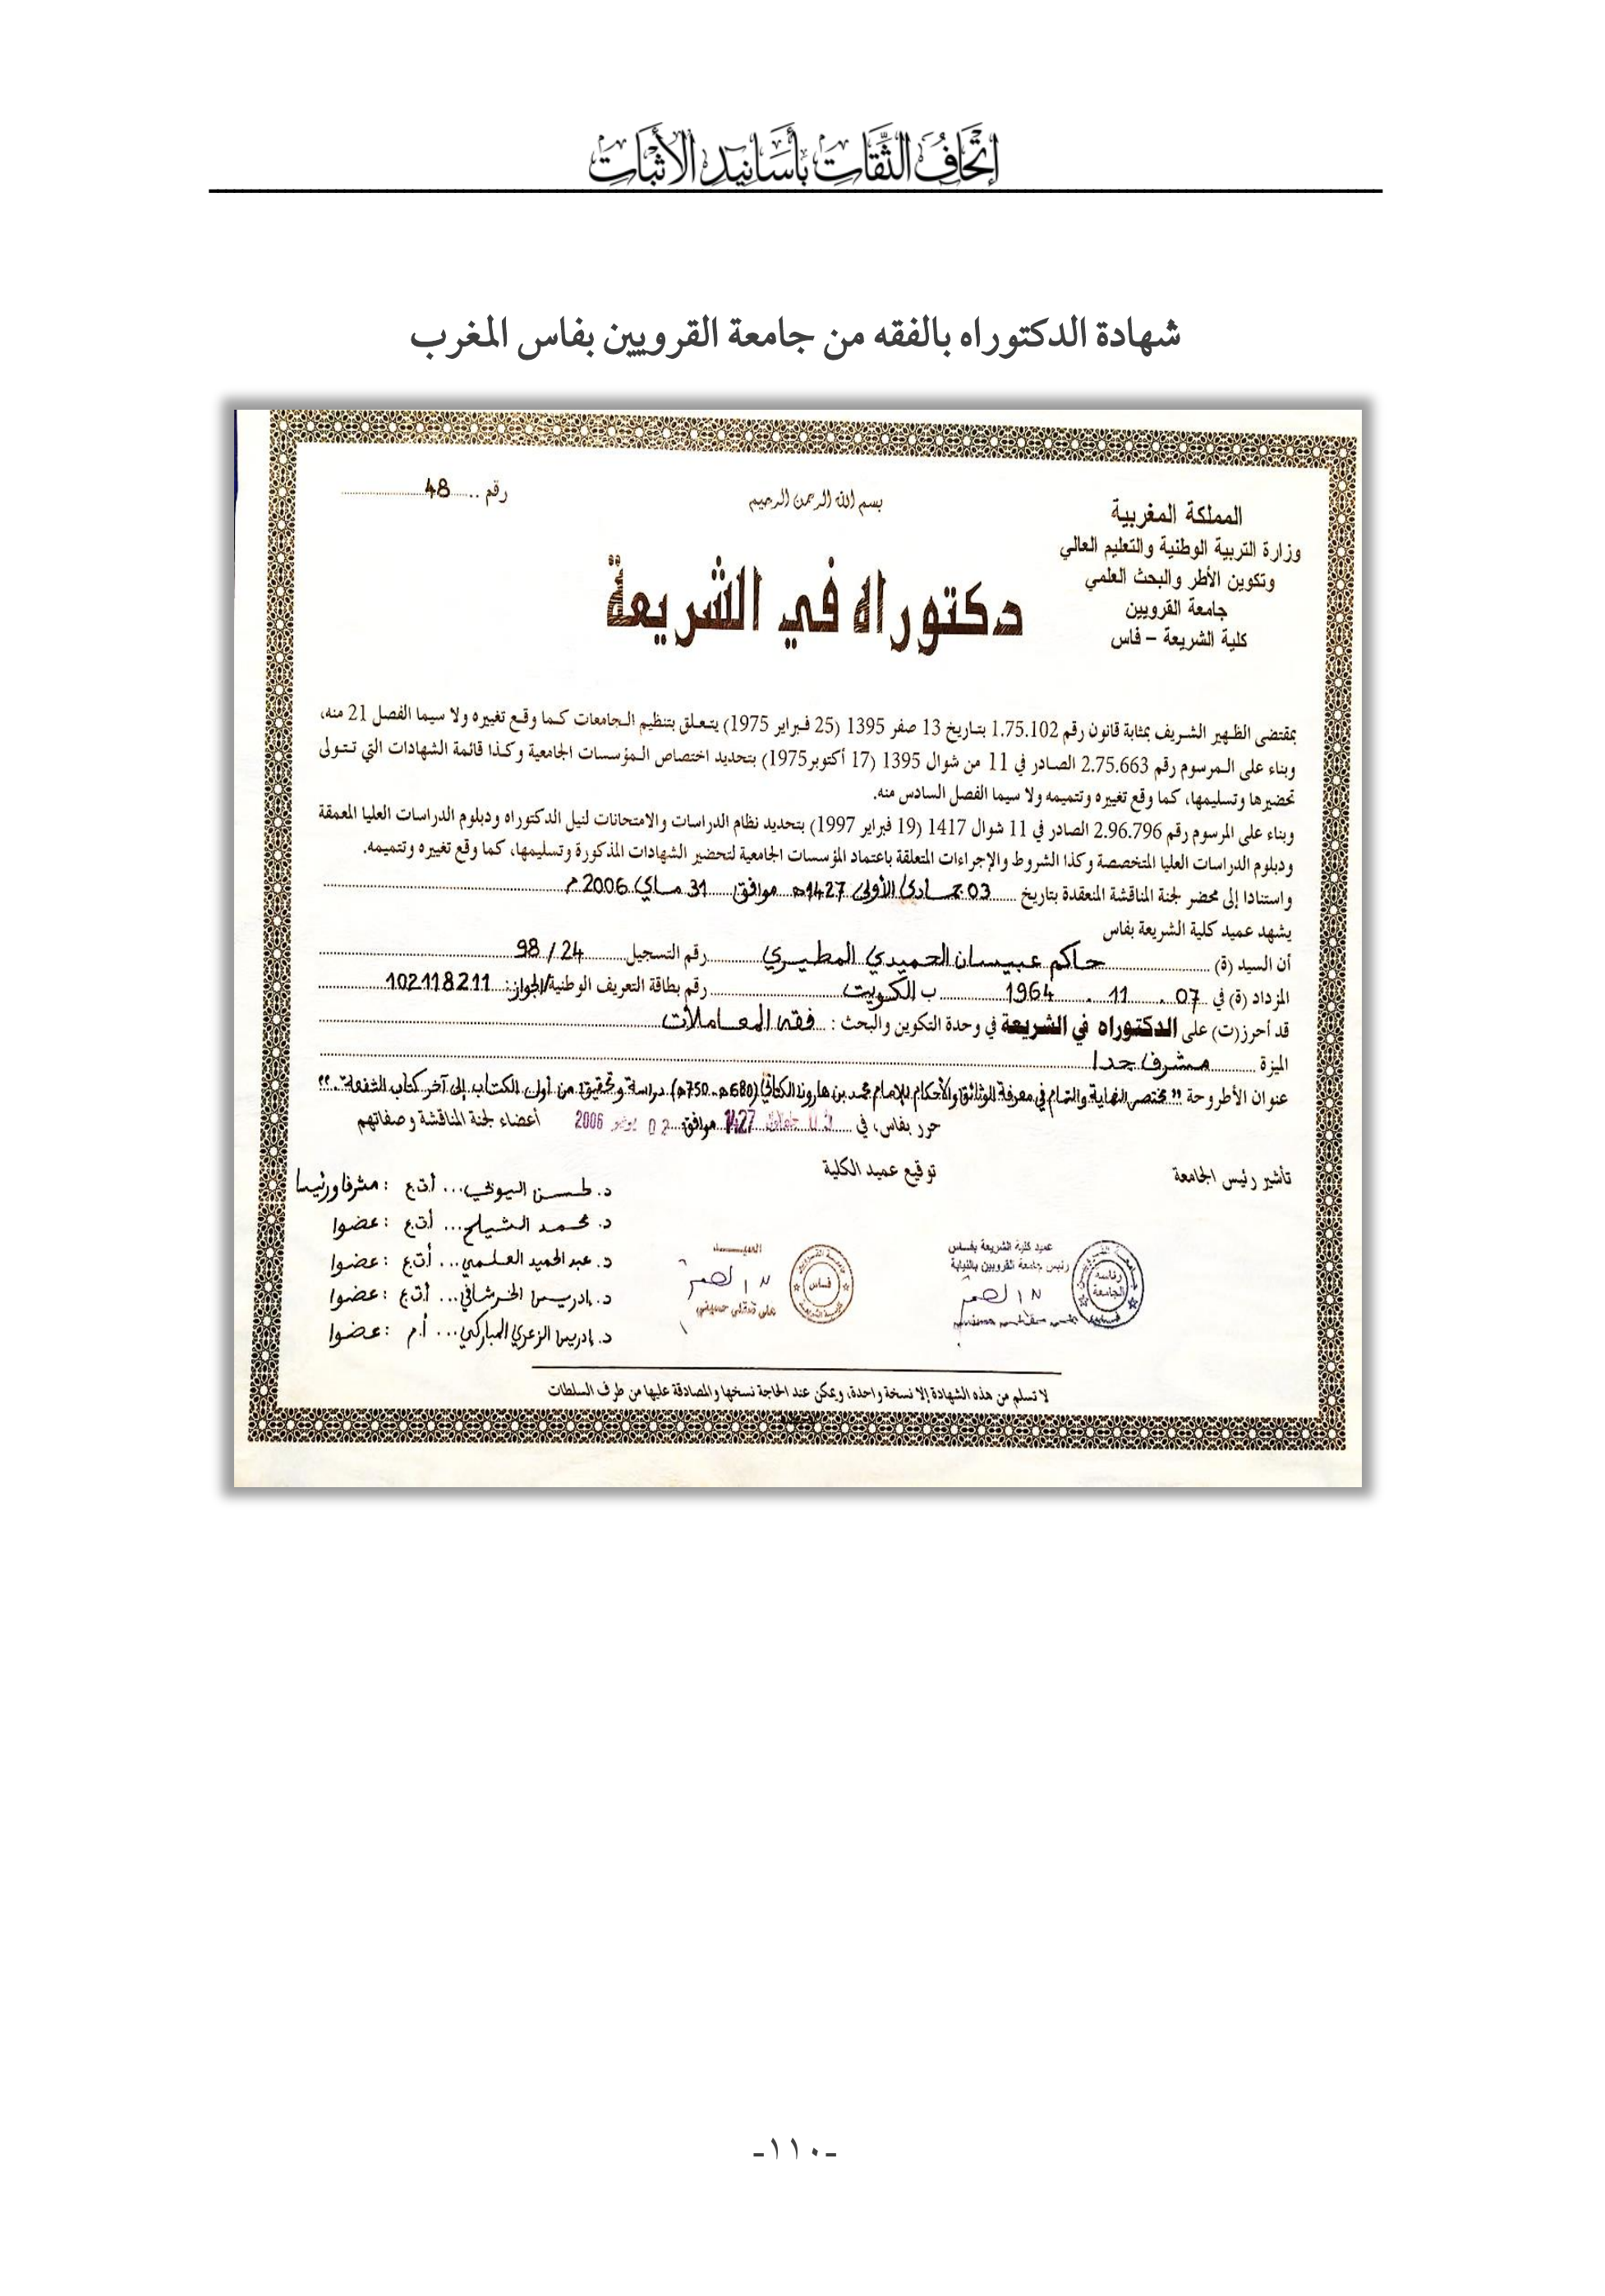 إتحاف الثقات بأسانيد الأثبات
شهادة الدكتوراه بالفقه من جامعة القرويين بفاس المغرب
المملكة المغربية
وزارة التربية الوطنية والتعليم العالي
وتكوين الأطر والبحث العلمي
جامعة القرويين
كلية الشريعة – فاس
بسم الله الرحمن الرحيم
رقم .. 48
دكتوراه في الشريعة
بمقتضى الظهير الشريف بمثابة قانون رقم 1.75.102 بتاريخ 13 صفر 1395 (25 فبراير 1975) يتعلق بتنظيم الجامعات كما وقع تغييره ولا سيما الفصل 21 منه،
وبناء على المرسوم رقم 2.75.663 الصادر في 11 من شوال 1395 (17 أكتوبر1975) بتحديد اختصاص المؤسسات الجامعية وكذا قائمة الشهادات التي تتولى
تحضيرها وتسليمها، كما وقع تغييره وتتميمه ولا سيما الفصل السادس منه.
وبناء على المرسوم رقم 2.96.796 الصادر في 11 شوال 1417 (19 فبراير 1997) بتحديد نظام الدراسات والامتحانات لنيل الدكتوراه ودبلوم الدراسات العليا المعمقة
ودبلوم الدراسات العليا المتخصصة وكذا الشروط والإجراءات المتعلقة باعتماد المؤسسات الجامعية لتحضير الشهادات المذكورة وتسليمها، كما وقع تغييره وتتميمه.
واستنادا إلى محضر لجنة المناقشة المنعقدة بتاريخ 03 جمادى الأولى 1427ه موافق 31 ماي 2006 م
يشهد عميد كلية الشريعة بفاس
أن السيد (ة) حاكم عبيسان الحميدي المطيري رقم التسجيل 98/24
المزداد (ة) في 07 . 11 . 1964 ب الكويت رقم بطاقة التعريف الوطنية/الجواز: 102118211
قد أحرز(ت) على الدكتوراه في الشريعة في وحدة التكوين والبحث : فقه المعاملات
الميزة مشرف جدا
عنوان الأطروحة "مختصر النهاية والتمام في معرفة الوثائق والأحكام للإمام محمد بن هارون الكناني (680ه-750ه) دراسة وتحقيق من أول الكتاب إلى آخر كتاب الشفعة"
حرر بفاس، في 1427 موافق 02 يونيو 2006
أعضاء لجنة المناقشة وصفاتهم
تأشير رئيس الجامعة
توقيع عميد الكلية
د. محمد الشيلح... أ.ت.ع : عضوا
د. عبد الحميد العلمي... أ.ت.ع : عضوا
د. إدريس الخرشافي... أ.ت.ع : عضوا
د. إدريس الزعري المباركي... أ.م : عضوا
عميد كلية الشريعة بفاس
رئيس جامعة القرويين بالنيابة
رئاسة الجامعة
العميد
فاس
لا تسلم من هذه الشهادة إلا نسخة واحدة، ويمكن عند الحاجة نسخها والمصادقة عليها من طرف السلطات
-١١٠-